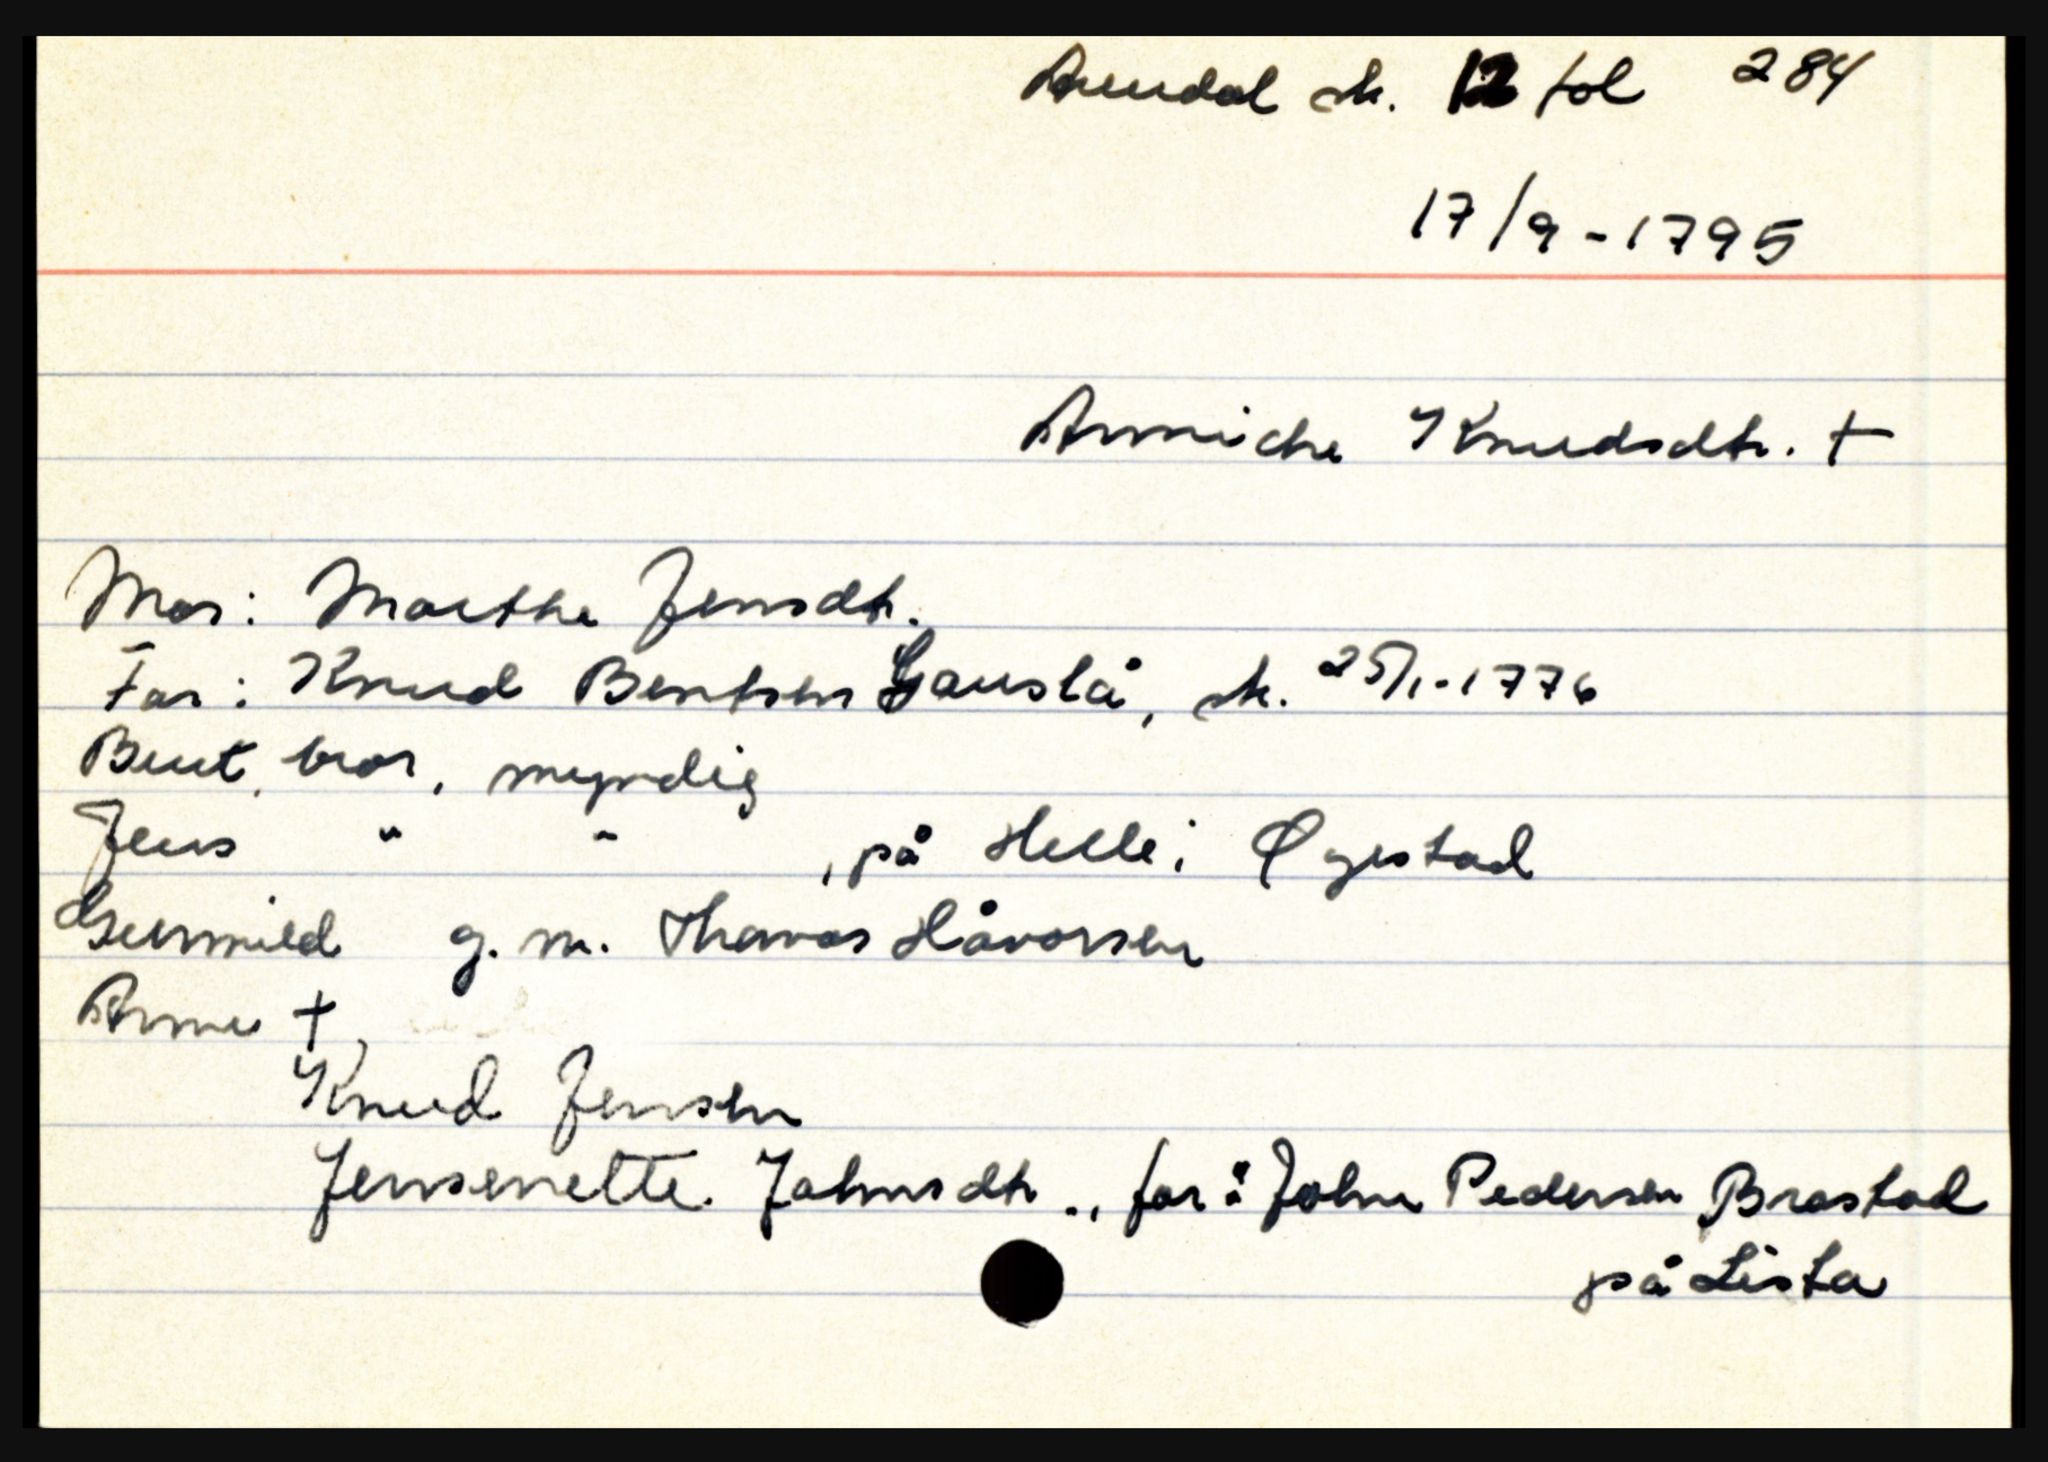 Arendal sk. 12 fol 284
17/9-1795
Anniche Knudsdtr. +
Mor: Marthe Jensdtr.
Far: Knud Bentsen Gauslå, sk. 25/1-1776
Bent, bror, myndig
Jens " " , på Helle i Øyestad
Gunnild g. m. Thomas Håvorsen
Anne +
Knud Jensen
Jensenette Johnsdtr., far: John Pedersen Brastad
på Lista